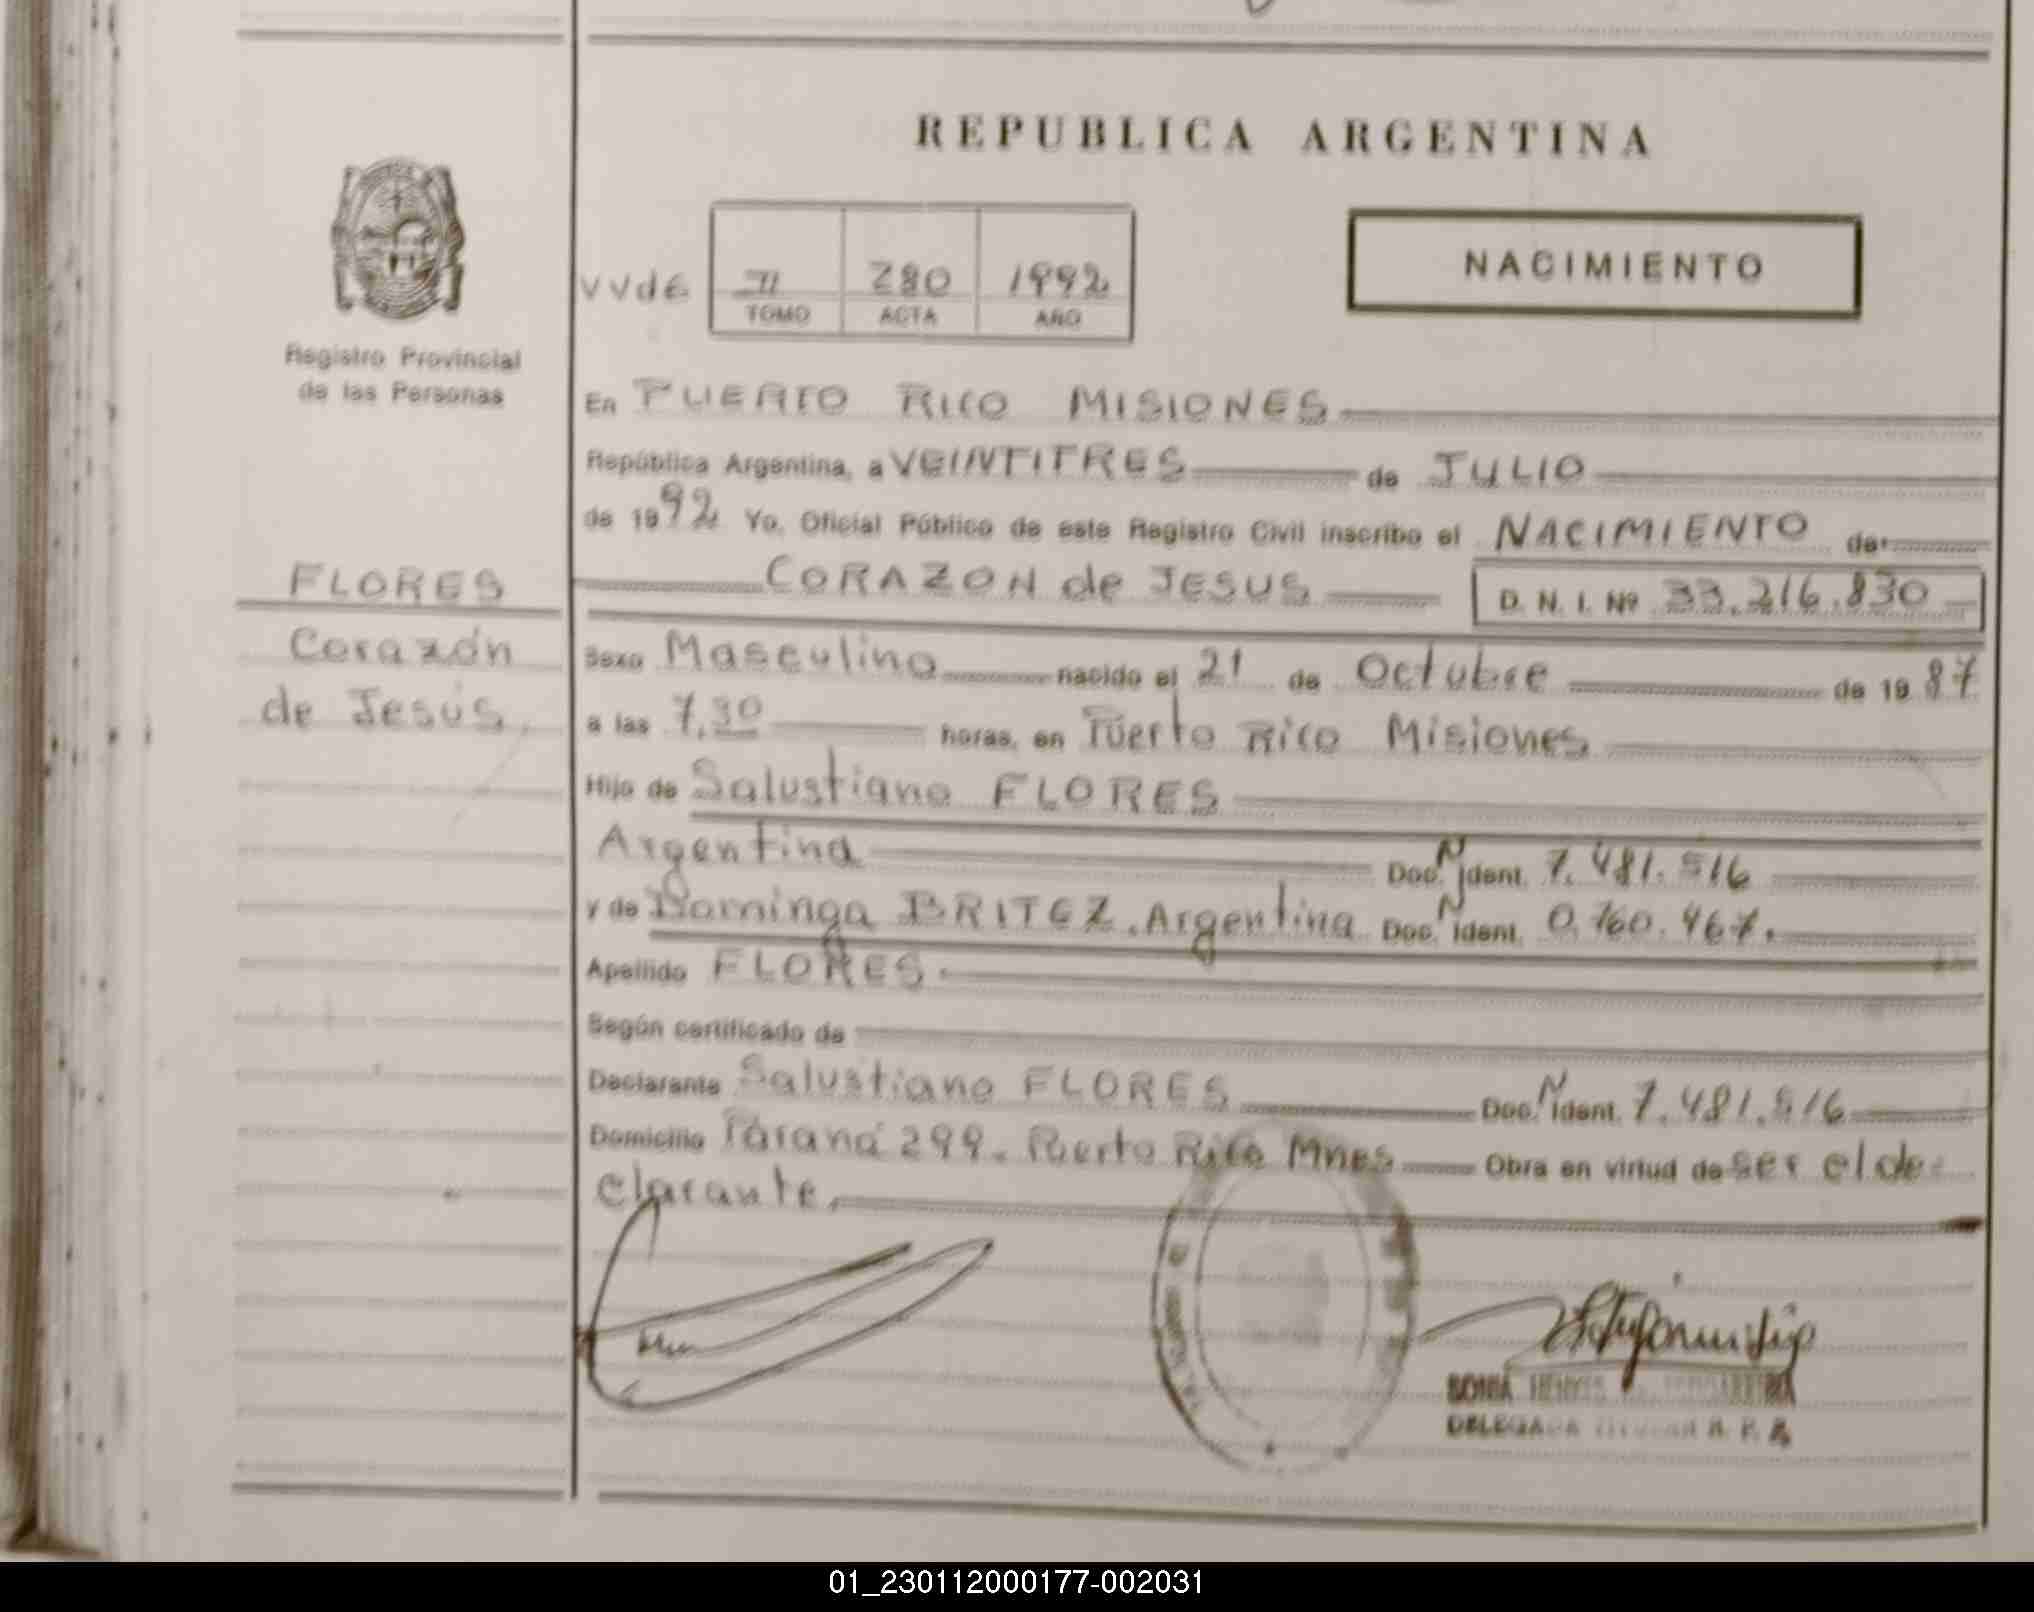 REPUBLICA ARGENTINA
II 280 1992
TOMO ACTA AÑO
NACIMIENTO
Registro Provincial
de las Personas
En PUERTO RICO MISIONES
República Argentina, a VEINTITRES de JULIO
de 1992 Yo, Oficial Público de este Registro Civil inscribo el NACIMIENTO de
CORAZON de JESUS D. N. I. Nº 33.216.830
FLORES
Corazón
de Jesús.
Sexo Masculino nacido el 21 de Octubre de 1987
a las 7,30 horas, en Puerto Rico Misiones
Hijo de Salustiano FLORES
Argentina Doc. Ident. 7.481.516
y de Dominga BRITEZ. Argentina Doc. Ident. 0.760.467.
Apellido FLORES.
Según certificado de
Declarante Salustiano FLORES Doc. Ident. 7.481.516
Domicilio Paraná 299. Puerto Rico Mnes Obra en virtud de ser el de-
clarante.
SONIA
DELEGADA
01_230112000177-002031